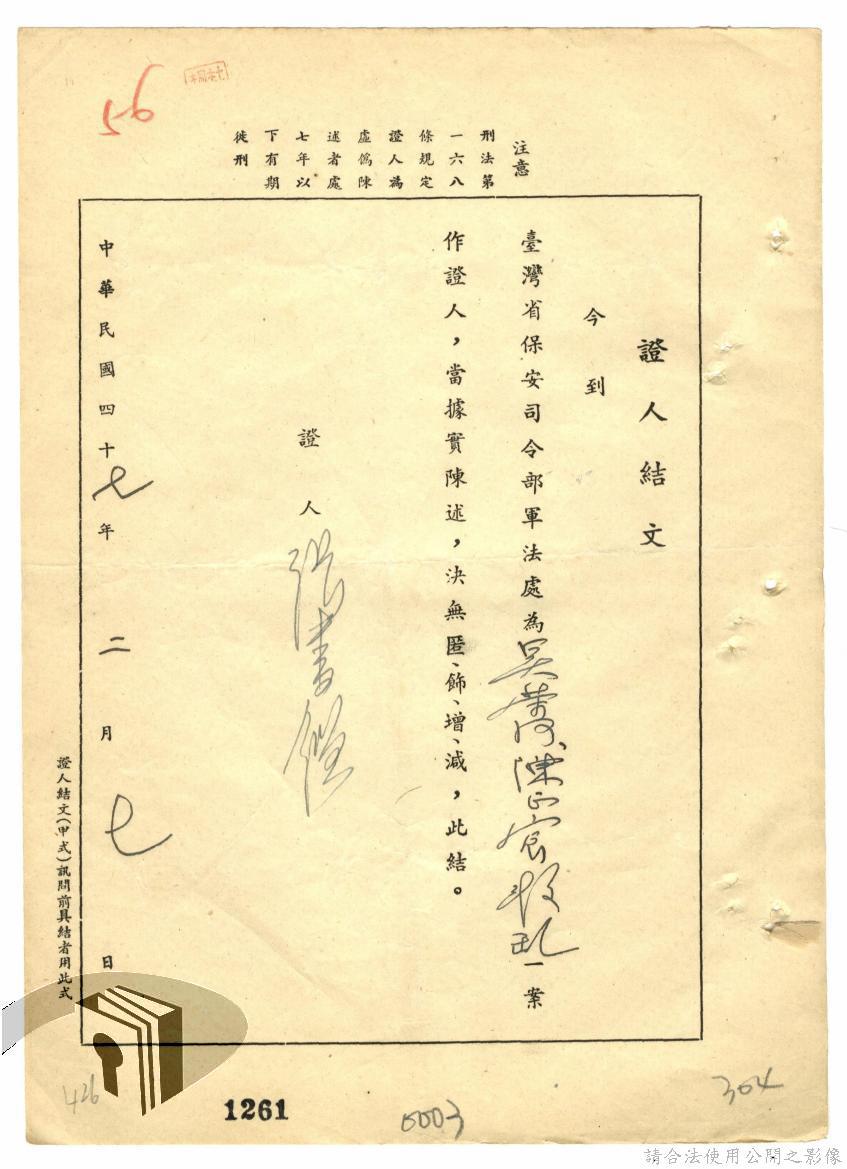 56
注意
刑法第
一六八
條規定
證人為
虛偽陳
述者處
七年以
下有期
徒刑
證人結文
今到
臺灣省保安司令部軍法處為吳 陳正宸叛乱一案
作證人，當據實陳述，決無匿、飾、增、減，此結。
證人 張書
中華民國四十七年二月七日
證人結文(甲式)訊問前具結者用此式
426
1261
0003
304
請合法使用公開之影像